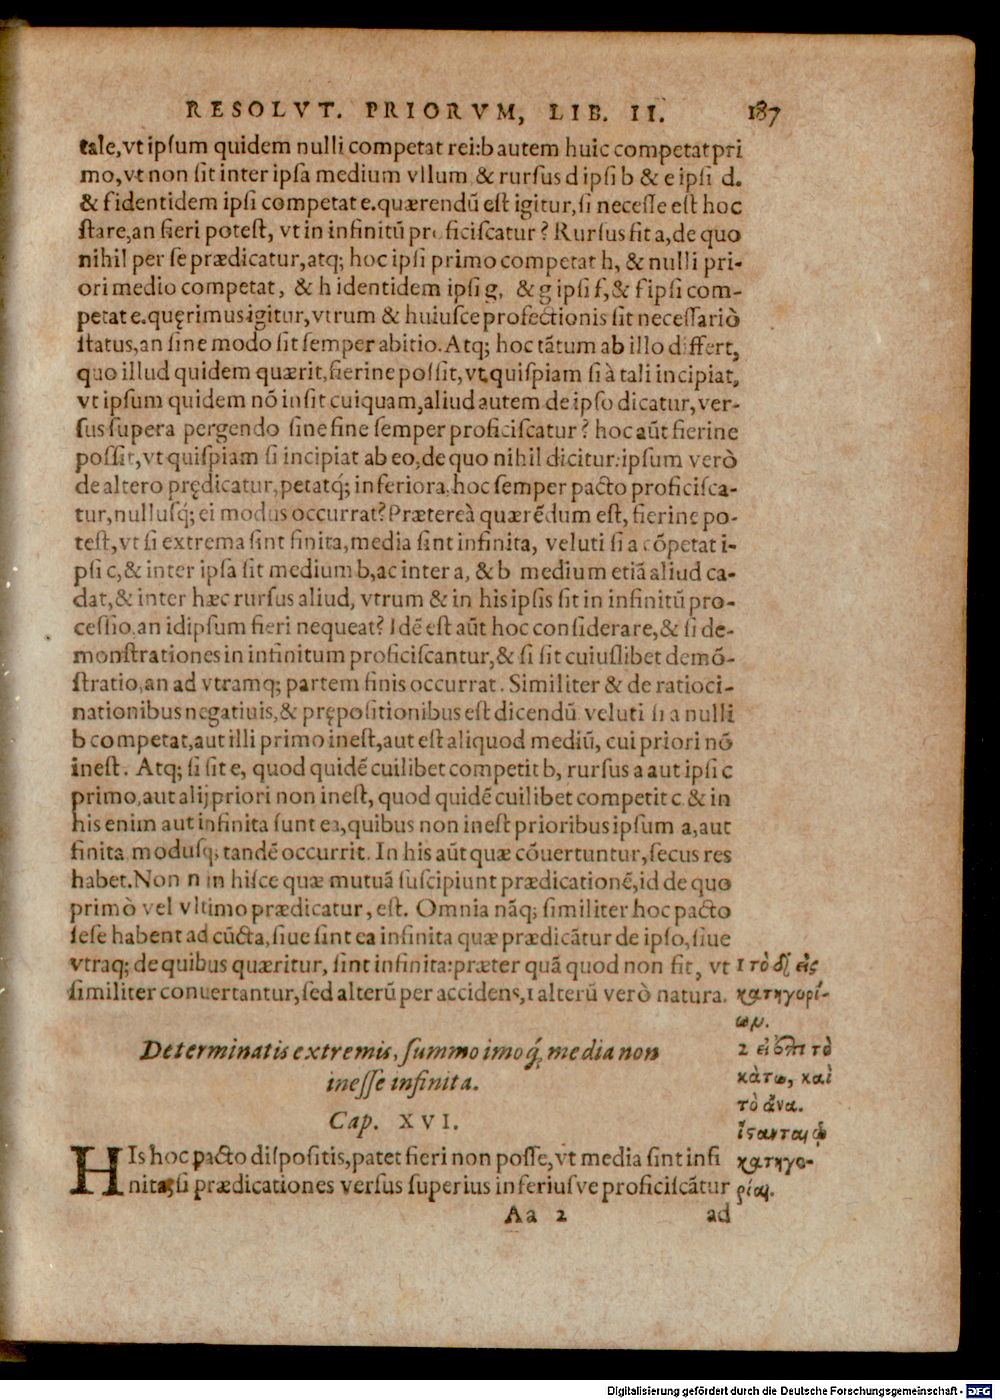 RESOLVT. PRIORVM, LIB. II. 187
tale,vt ipsum quidem nulli competat rei:b autem huic competat pri
mo,vt non sit inter ipsa medium vllum & rursus d ipsi b & e ipsi d.
& f identidem ipsi competat e.quærendū est igitur,si necesse est hoc
stare,an fieri potest, vt in infinitū proficiscatur? Rursus sit a,de quo
nihil per se prædicatur,atq; hoc ipsi primo competat h, & nulli pri-
ori medio competat, & h identidem ipsi g, & g ipsi f,& f ipsi com-
petat e.quęrimus igitur,vtrum & huiusce profectionis sit necessariò
status,an sine modo sit semper abitio. Atq; hoc tātum ab illo differt,
quo illud quidem quærit,fierine possit, vt quispiam si à tali incipiat,
vt ipsum quidem nō insit cuiquam,aliud autem de ipso dicatur,ver-
sus supera pergendo sine fine semper proficiscatur? hoc aūt fierine
possit,vt quispiam si incipiat ab eo,de quo nihil dicitur:ipsum verò
de altero prędicatur,petatq́; inferiora,hoc semper pacto proficisca-
tur,nullusq́; ei modus occurrat? Prætereà quærēdum est, fierine po-
test,vt si extrema sint finita,media sint infinita, veluti si a cōpetat i-
psi c,& inter ipsa sit medium b,ac inter a, & b medium etiā aliud ca-
dat,& inter hæc rursus aliud, vtrum & in his ipsis sit in infinitū pro-
cessio,an id ipsum fieri nequeat? Idē est aūt hoc considerare,& si de-
monstrationes in infinitum proficiscantur,& si sit cuiuslibet demō-
stratio,an ad vtramq; partem finis occurrat. Similiter & de ratioci-
nationibus negatiuis,& prępositionibus est dicendū veluti si a nulli
b competat,aut illi primo inest,aut est aliquod mediū, cui priori nō
inest. Atq; si sit e, quod quidē cuilibet competit b, rursus a aut ipsi c
primo,aut alij priori non inest, quod quidē cuilibet competit c & in
his enim aut infinita sunt ea,quibus non inest prioribus ipsum a,aut
finita modusq; tandē occurrit. In his aūt quæ cōuertuntur,secus res
habet. Non n in hisce quæ mutuā suscipiunt prædicationē,id de quo
primò vel vltimo prædicatur, est. Omnia nāq; similiter hoc pacto
sese habent ad cūcta,siue sint ea infinita quæ prædicātur de ipso,siue
vtraq; de quibus quæritur, sint infinita:præter quā quod non fit, vt
similiter conuertantur,sed alterū per accidens,1 alterū verò natura.
1 τὸ δ' εἰς
κατηγορί-
ων.
Determinatis extremis, summo imoq́; media non
inesse infinita.
Cap. XVI.
2 εἰ ἐπὶ τὸ
κάτω, καὶ
τὸ ἄνω.
ἵστανται αἱ
κατηγο-
ρίαι.
HIs hoc pacto dispositis,patet fieri non posse,vt media sint infi
nita,si prædicationes versus superius inferiusve proficiscātur
Aa 2 ad
Digitalisierung gefördert durch die Deutsche Forschungsgemeinschaft - DFG